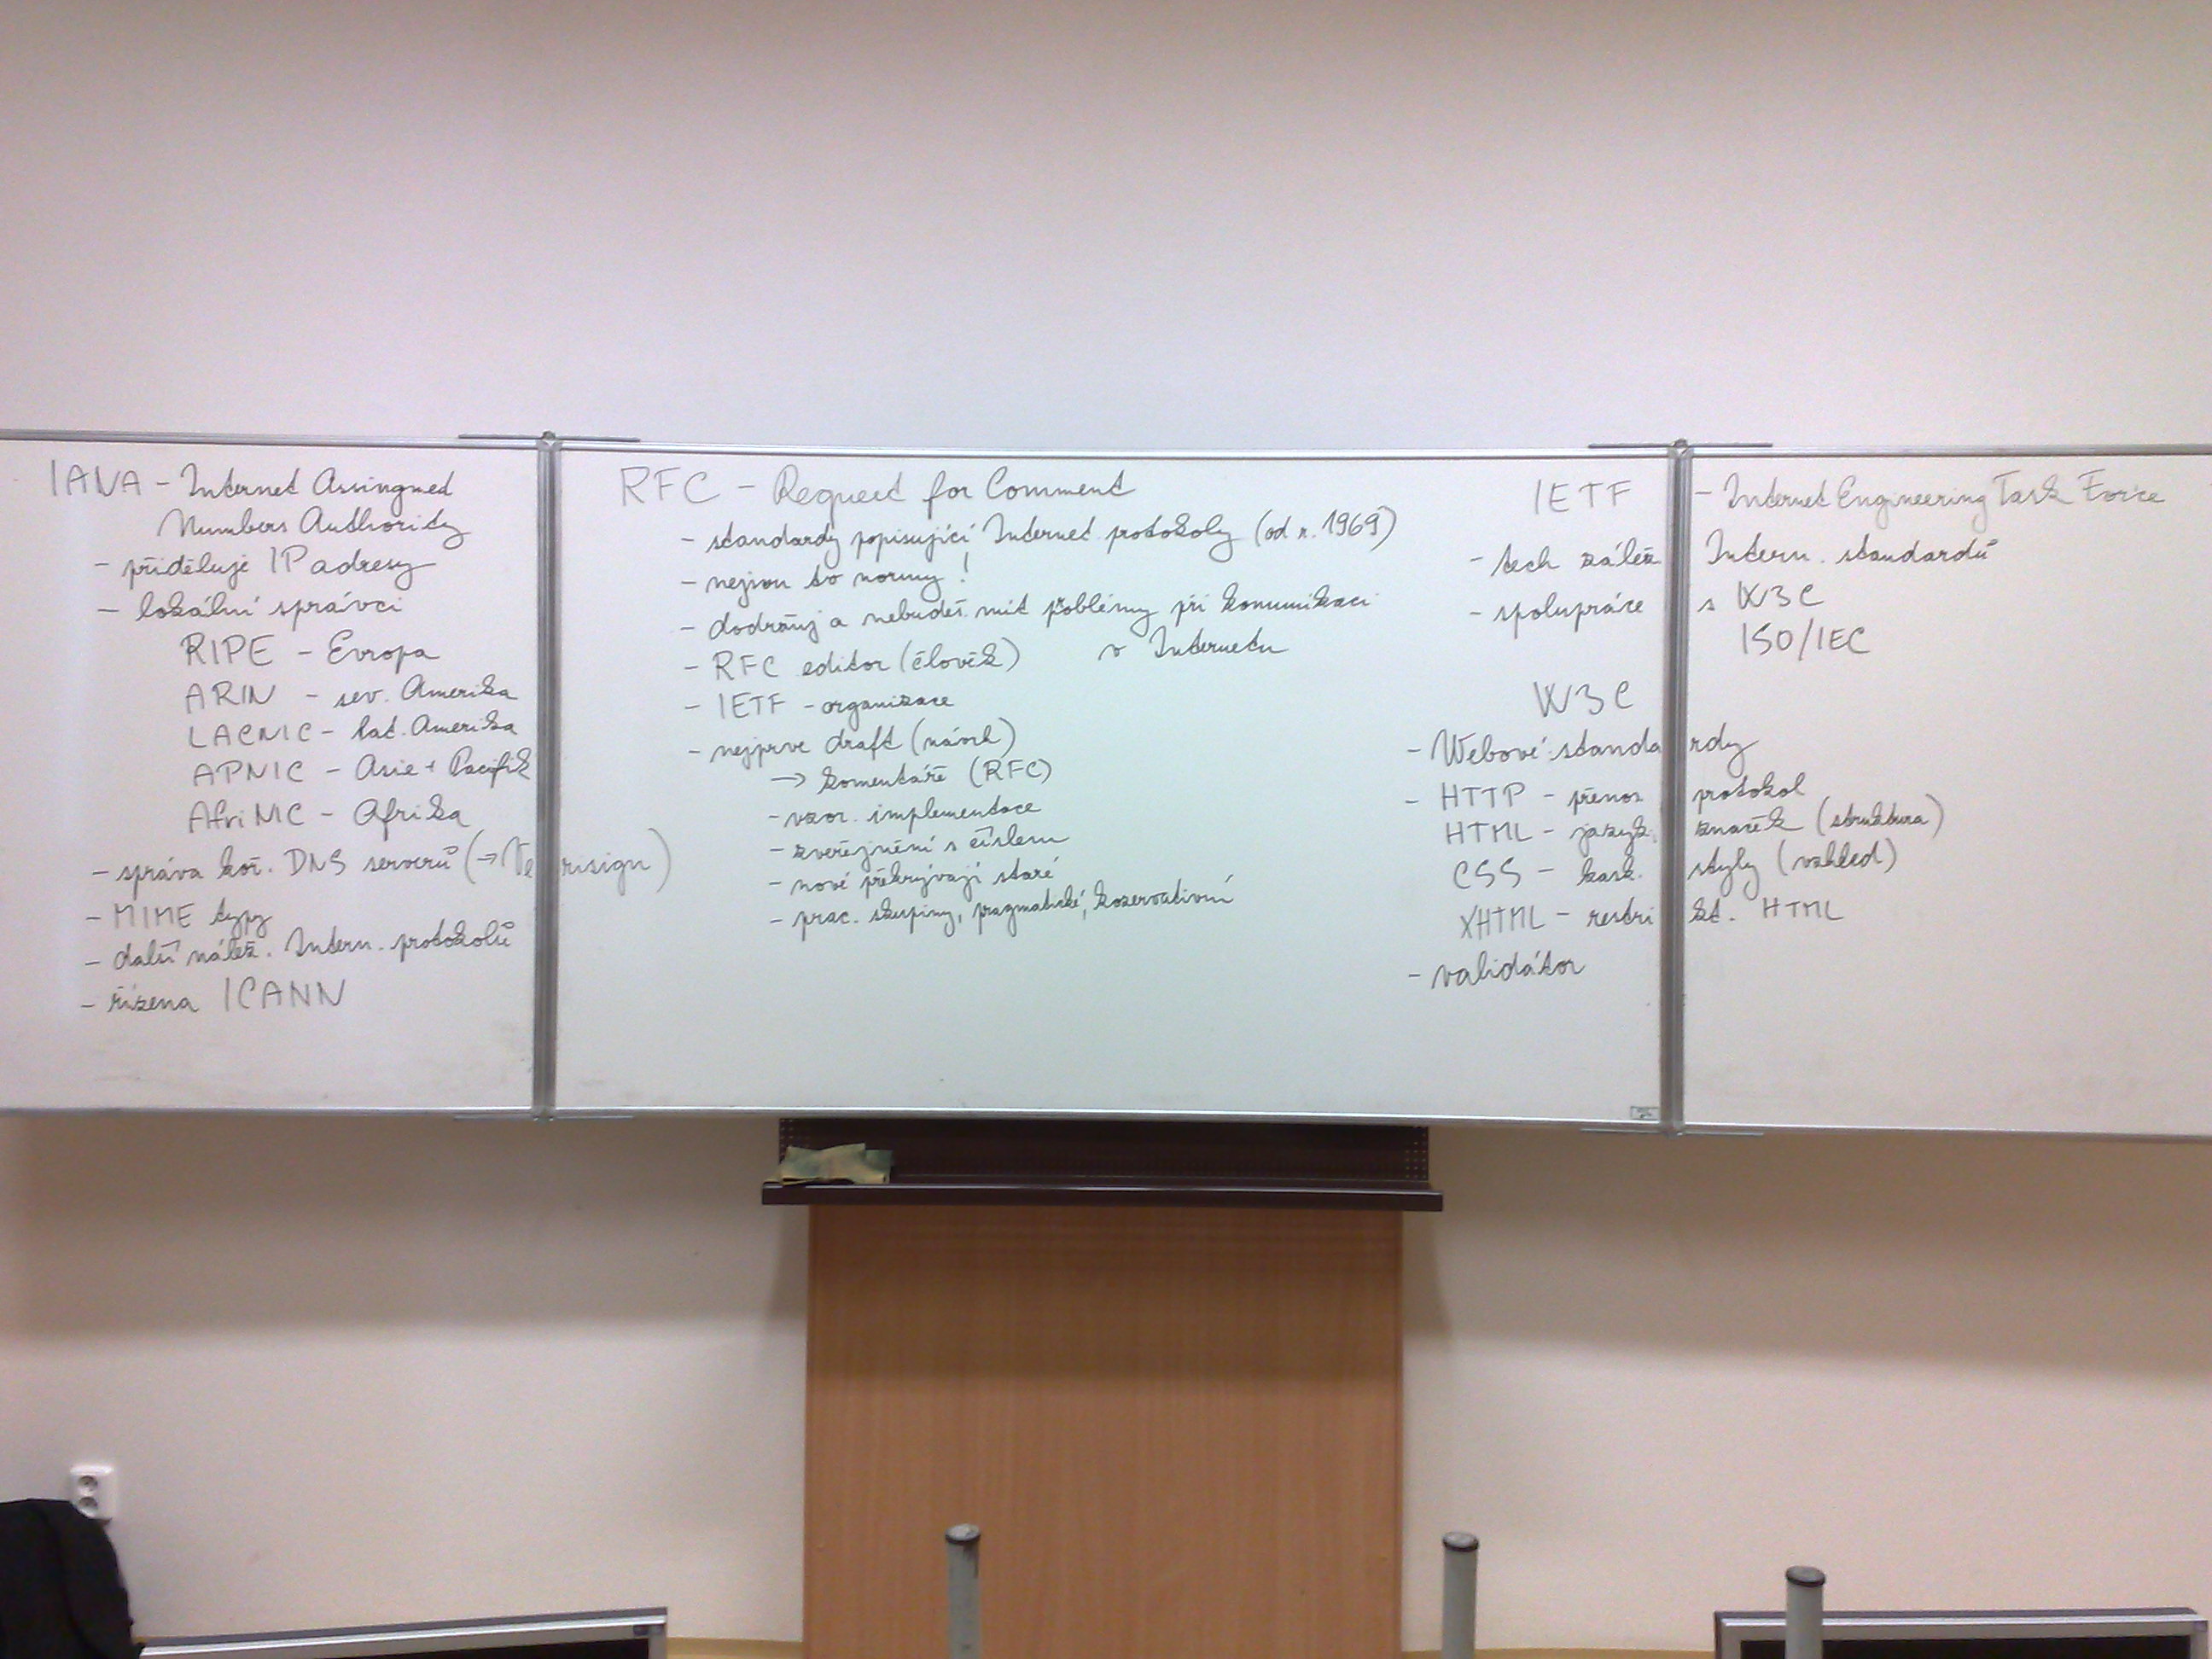 IANA - Internet Assingned
Numbers Authority
- přiděluje IP adresy
- lokální správci
RIPE - Evropa
ARIN - sev. Amerika
LACNIC - lat. Amerika
APNIC - Asie + Pacifik
AfriNIC - Afrika
- správa koř. DNS serverů (→ Verisign)
- MIME typy
- další nálež. Intern. protokolů
- řízena ICANN
RFC - Request for Comment
- standardy popisující Internet. protokoly (od r. 1969)
- nejsou to normy!
- dodržuj a nebudeš mít problémy při komunikaci
v Internetu
- RFC editor (člověk)
- IETF - organizace
- nejprve draft (návrh)
→ komentáře (RFC)
- vzor. implementace
- zveřejnění s číslem
- nové překrývají staré
- prac. skupiny, pragmatické, kozervativní
IETF - Internet Engineering Task Force
- tech zálež Intern. standardů
- spolupráce s W3C
ISO/IEC
W3C
- Webové standardy
- HTTP - přenos protokol
HTML - jazyk značek (struktura)
CSS - kask. styly (vzhled)
XHTML - restrikt. HTML
- validátor